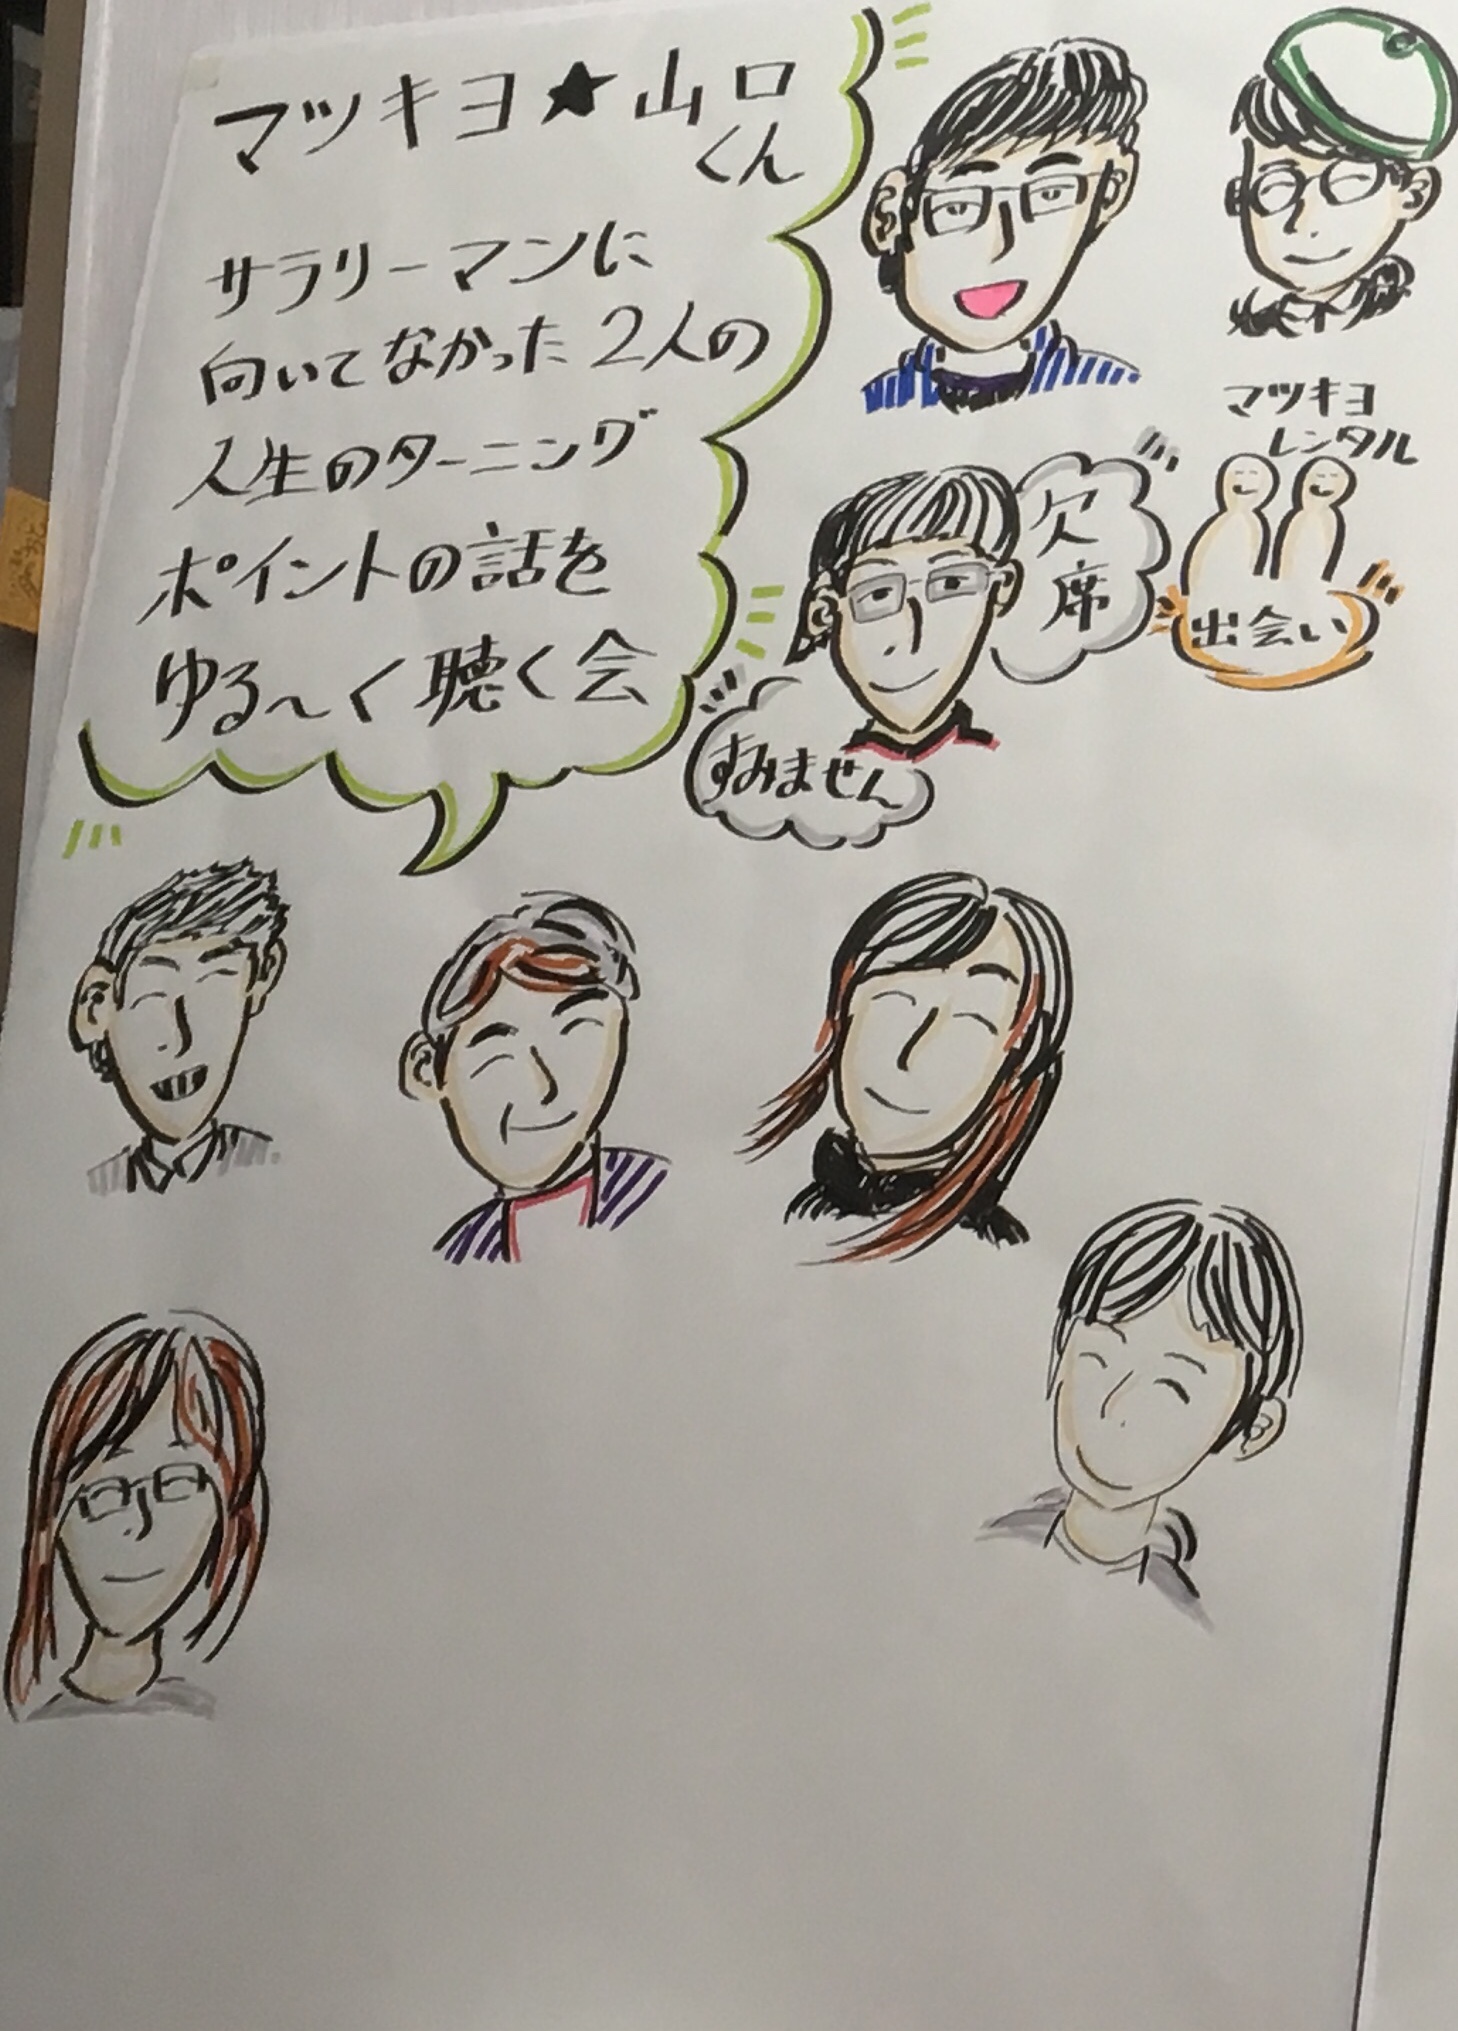 マツキヨ★山口
くん
サラリーマンに
向いてなかった2人の
人生のターニング
ポイントの話を
ゆる〜く聴く会
マツキヨ
レンタル
出会い
欠
席
すみません